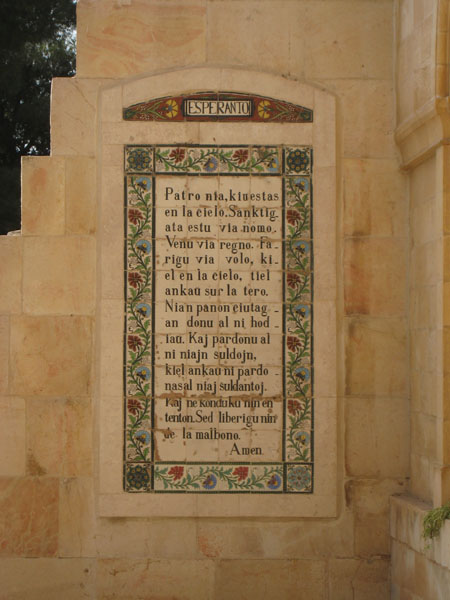 ESPERANTO
Patro nia, kiu estas
en la cielo. Sanktig
ata estu via nomo.
Venu via regno. Fa-
rigu via volo, ki-
el en la cielo, tiel
ankau sur la tero.
Nian panon ciutag
an donu al ni hod-
iau. Kaj pardonu al
ni niajn suldojn,
kiel ankau ni pardo-
nas al niaj suldantoj.
Kaj ne konduku nin en
tenton. Sed liberigu nin
de la malbono.
Amen.